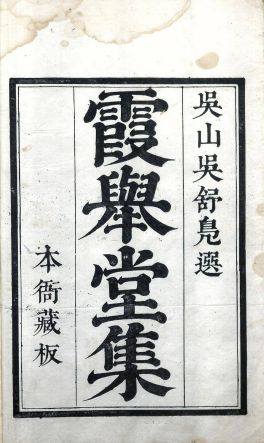 吳山吳舒鳧選
霞舉堂集
本衙藏板